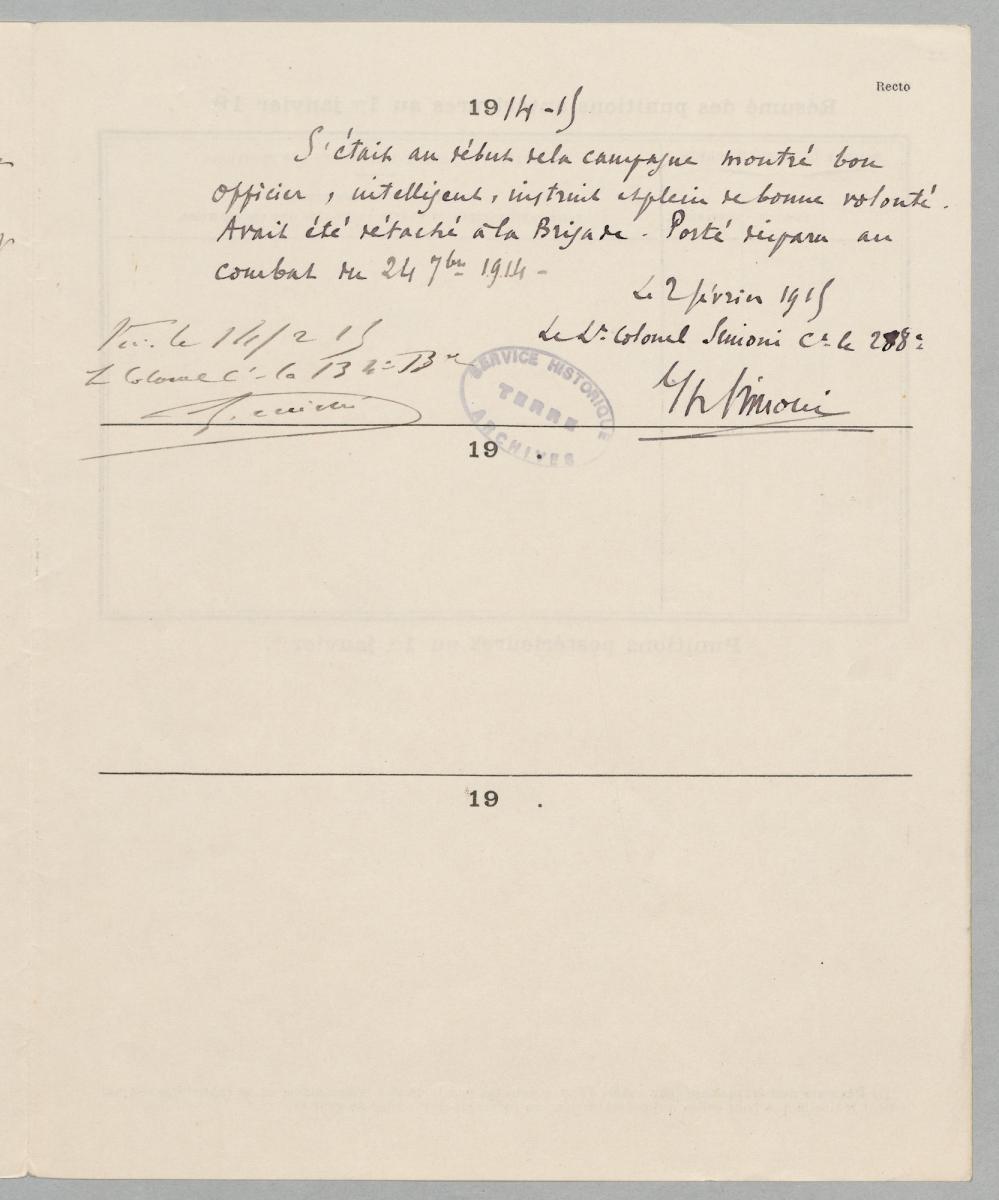 Recto
1914-15
S'était au début de la campagne montré bon
officier, intelligent, instruit et plein de bonne volonté.
Avait été détaché à la Brigade. Porté disparu au
combat du 24 7bre 1914 -
Le 2 février 1915
Le Lt Colonel Simoni Ct le 288e
Simoni
Vu. le 14/2 15
Colonel Ct la Be
SERVICE HISTORIQUE
TERRE
ARCHIVES
19 .
19 .